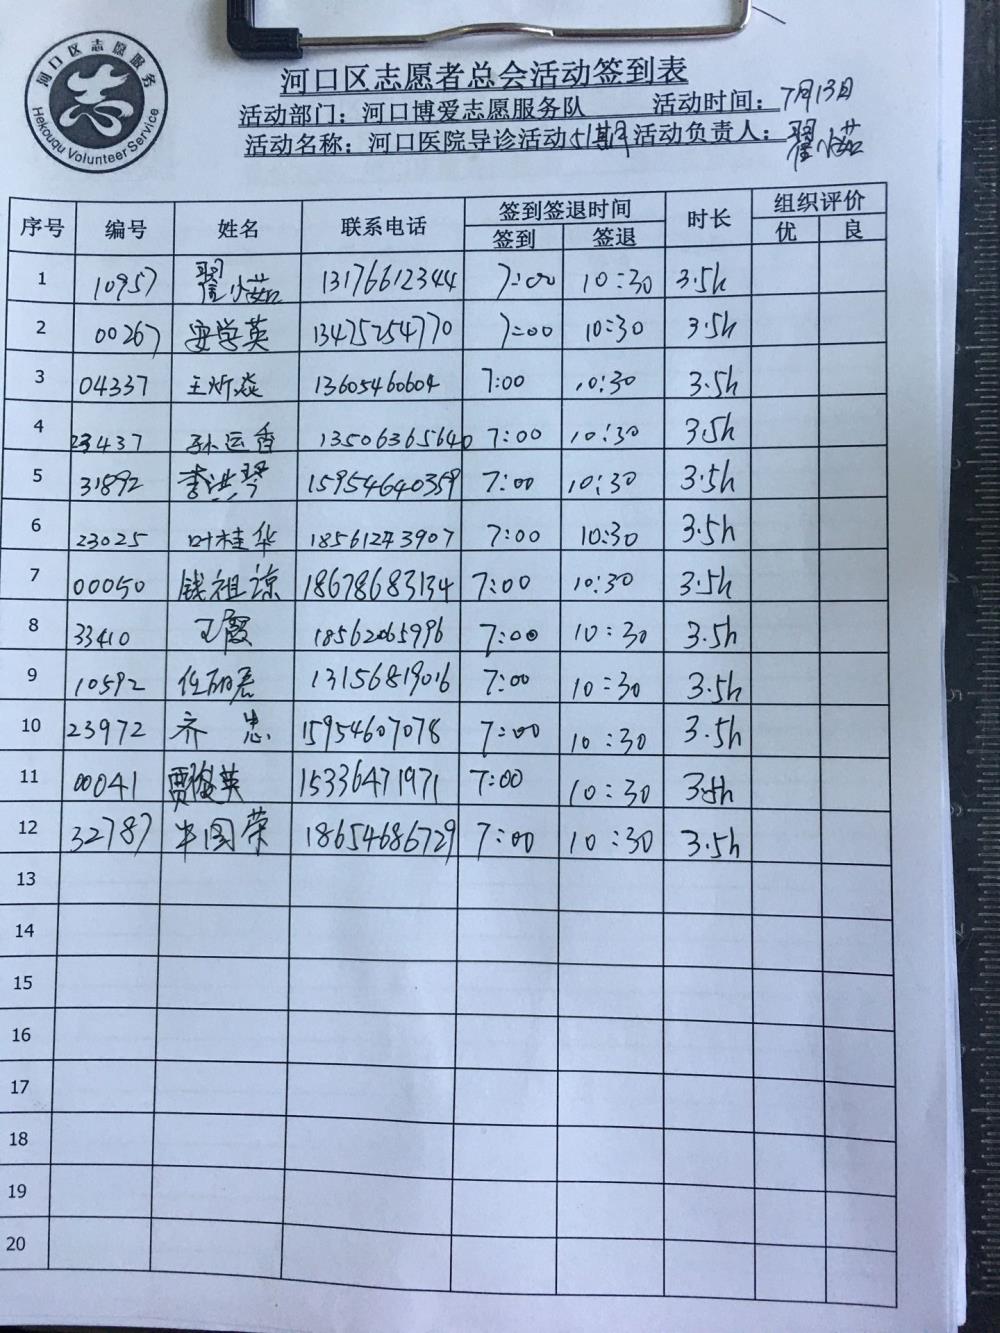 河口区志愿服务
Hekouqu Volunteer Service
河口区志愿者总会活动签到表
活动部门：河口博爱志愿服务队 活动时间：7月13日
活动名称：河口医院导诊活动51期 活动负责人：翟小茹
序号 编号 姓名 联系电话 签到签退时间 时长 组织评价
签到 签退 优 良
1 10957 翟小茹 13176612344 7:00 10:30 3.5h
2 00267 安学英 13475254770 7:00 10:30 3.5h
3 04337 王炘焱 13605460604 7:00 10:30 3.5h
4 23437 孙运香 13506365640 7:00 10:30 3.5h
5 31892 李洪琴 15954640359 7:00 10:30 3.5h
6 23025 叶桂华 18561273907 7:00 10:30 3.5h
7 00050 钱祖谅 18678683134 7:00 10:30 3.5h
8 33410 王霞 18562065996 7:00 10:30 3.5h
9 10592 任丽君 13156819016 7:00 10:30 3.5h
10 23972 齐忠 15954607078 7:00 10:30 3.5h
11 00041 贾俊英 15336471971 7:00 10:30 3.5h
12 32787 国荣 18654686729 7:00 10:30 3.5h
13
14
15
16
17
18
19
20